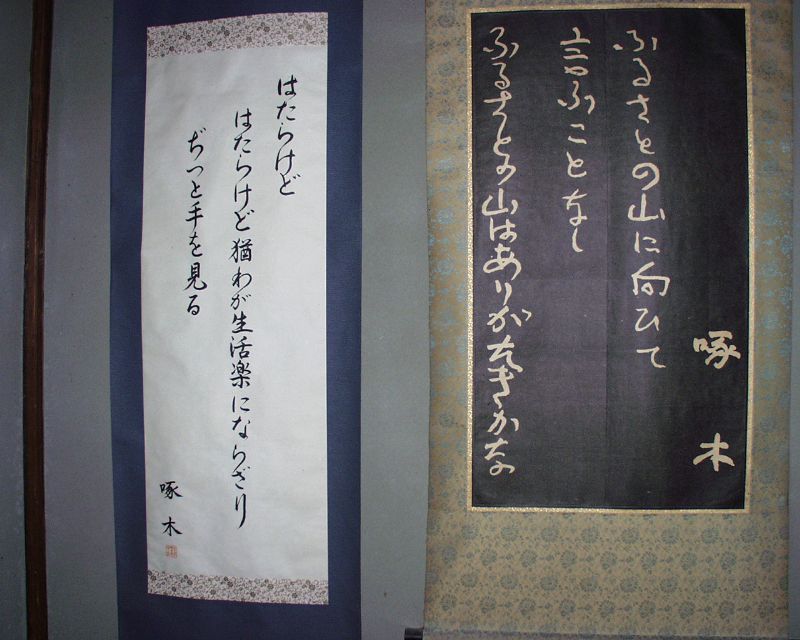 啄木
ふるさとの山に向ひて
言ふことなし
ふるさとの山はありがたきかな
はたらけど
はたらけど猶わが生活楽にならざり
ぢつと手を見る
啄木